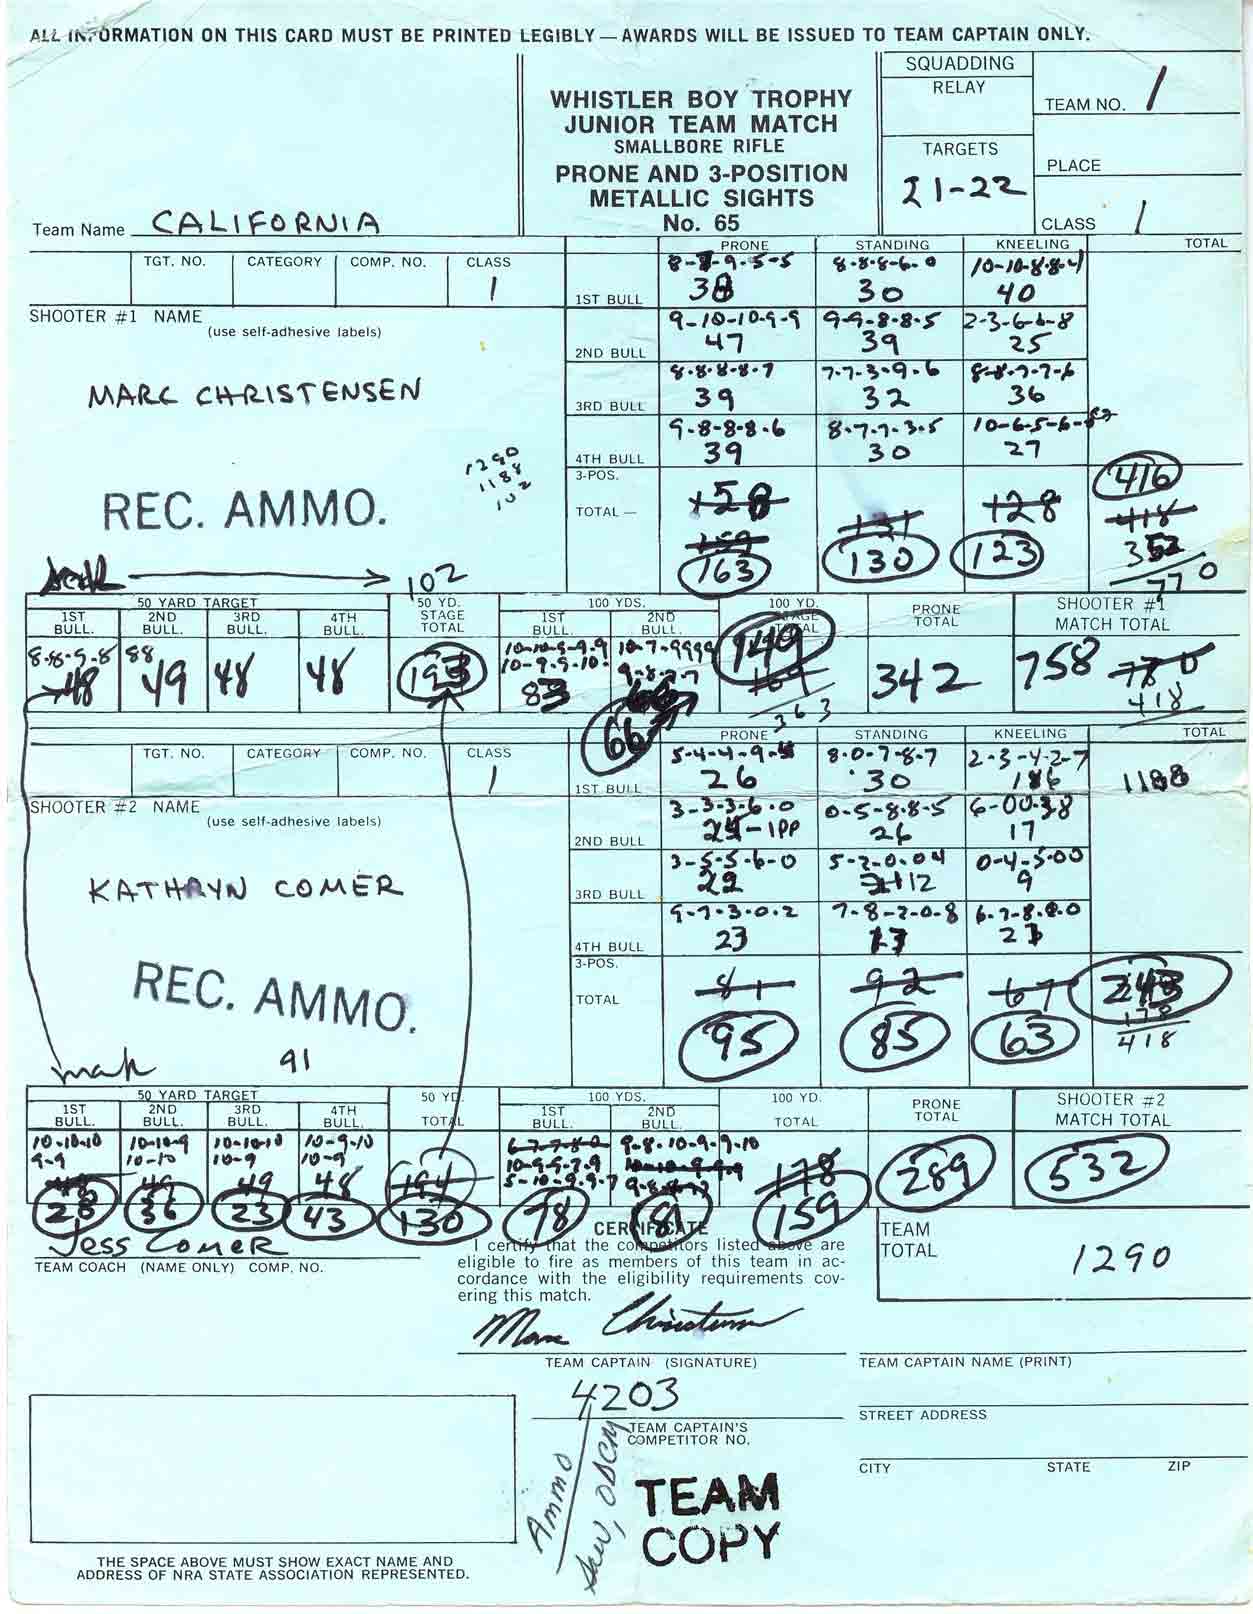 ALL INFORMATION ON THIS CARD MUST BE PRINTED LEGIBLY — AWARDS WILL BE ISSUED TO TEAM CAPTAIN ONLY.
WHISTLER BOY TROPHY
JUNIOR TEAM MATCH
SMALLBORE RIFLE
PRONE AND 3-POSITION
METALLIC SIGHTS
No. 65
SQUADDING
RELAY
TARGETS
21-22
TEAM NO. 1
PLACE
CLASS 1
Team Name CALIFORNIA
PRONE STANDING KNEELING TOTAL
TGT. NO. CATEGORY COMP. NO. CLASS
1
8-8-8-6-0 10-10-8-8-4
1ST BULL 38 30 40
SHOOTER #1 NAME
(use self-adhesive labels)
9-10-10-9-9 9-9-8-8-5 2-3-6-6-8
2ND BULL 47 39 25
MARC CHRISTENSEN
8-8-8-8-7 7-7-3-9-6 8-8-7-7-6
3RD BULL 39 32 36
9-8-8-8-6 8-7-7-3-5
4TH BULL 39 30 27
1290
1188
102
REC. AMMO.
3-POS.
TOTAL — 158 131 128 416
159 418
163 130 123 352
770
102
50 YARD TARGET 50 YD. STAGE TOTAL 100 YDS. 100 YD. STAGE TOTAL PRONE TOTAL SHOOTER #1 MATCH TOTAL
1ST BULL. 2ND BULL. 3RD BULL. 4TH BULL. 1ST BULL. 2ND BULL.
8-8-9-8 88 10-10-9-9-9 10-7-9999
10-9-9-9-10 9-8-7-7
48 49 48 48 193 83 66 149 342 758 770
169 418
363
PRONE STANDING KNEELING TOTAL
TGT. NO. CATEGORY COMP. NO. CLASS
1
5-4-4-9-4 8-0-7-8-7 2-3-4-2-7
1ST BULL 26 30 1188
SHOOTER #2 NAME
(use self-adhesive labels)
3-3-3-6-0 0-5-8-8-5 6-00-3-8
2ND BULL 24-1PP 26 17
KATHRYN COMER
3-5-5-6-0 5-2-0-04 0-4-5-00
3RD BULL 22 12 9
9-7-3-0-2 7-8-2-0-8 6-7-8-0-0
4TH BULL 23 17 21
REC. AMMO.
3-POS.
TOTAL 81 92 67 243
95 85 63 178
418
91
50 YARD TARGET 50 YD. TOTAL 100 YDS. 100 YD. TOTAL PRONE TOTAL SHOOTER #2 MATCH TOTAL
1ST BULL. 2ND BULL. 3RD BULL. 4TH BULL. 1ST BULL. 2ND BULL.
10-10-10 10-10-9 10-10-10 10-9-10 6-7-7-8-0 9-8-10-9-9-10
9-9 10-10 10-9 10-9 10-9-9-7-9
5-10-9-9-7
48 49 49 48 194 178
28 36 23 43 130 78 81 159 289 532
Jess Comer
TEAM COACH (NAME ONLY) COMP. NO.
CERTIFICATE
I certify that the competitors listed above are
eligible to fire as members of this team in ac-
cordance with the eligibility requirements cov-
ering this match.
TEAM
TOTAL 1290
Marc Christensen
TEAM CAPTAIN (SIGNATURE)
TEAM CAPTAIN NAME (PRINT)
4203
TEAM CAPTAIN'S
COMPETITOR NO.
STREET ADDRESS
CITY STATE ZIP
Ammo
ODCM
TEAM
COPY
THE SPACE ABOVE MUST SHOW EXACT NAME AND
ADDRESS OF NRA STATE ASSOCIATION REPRESENTED.